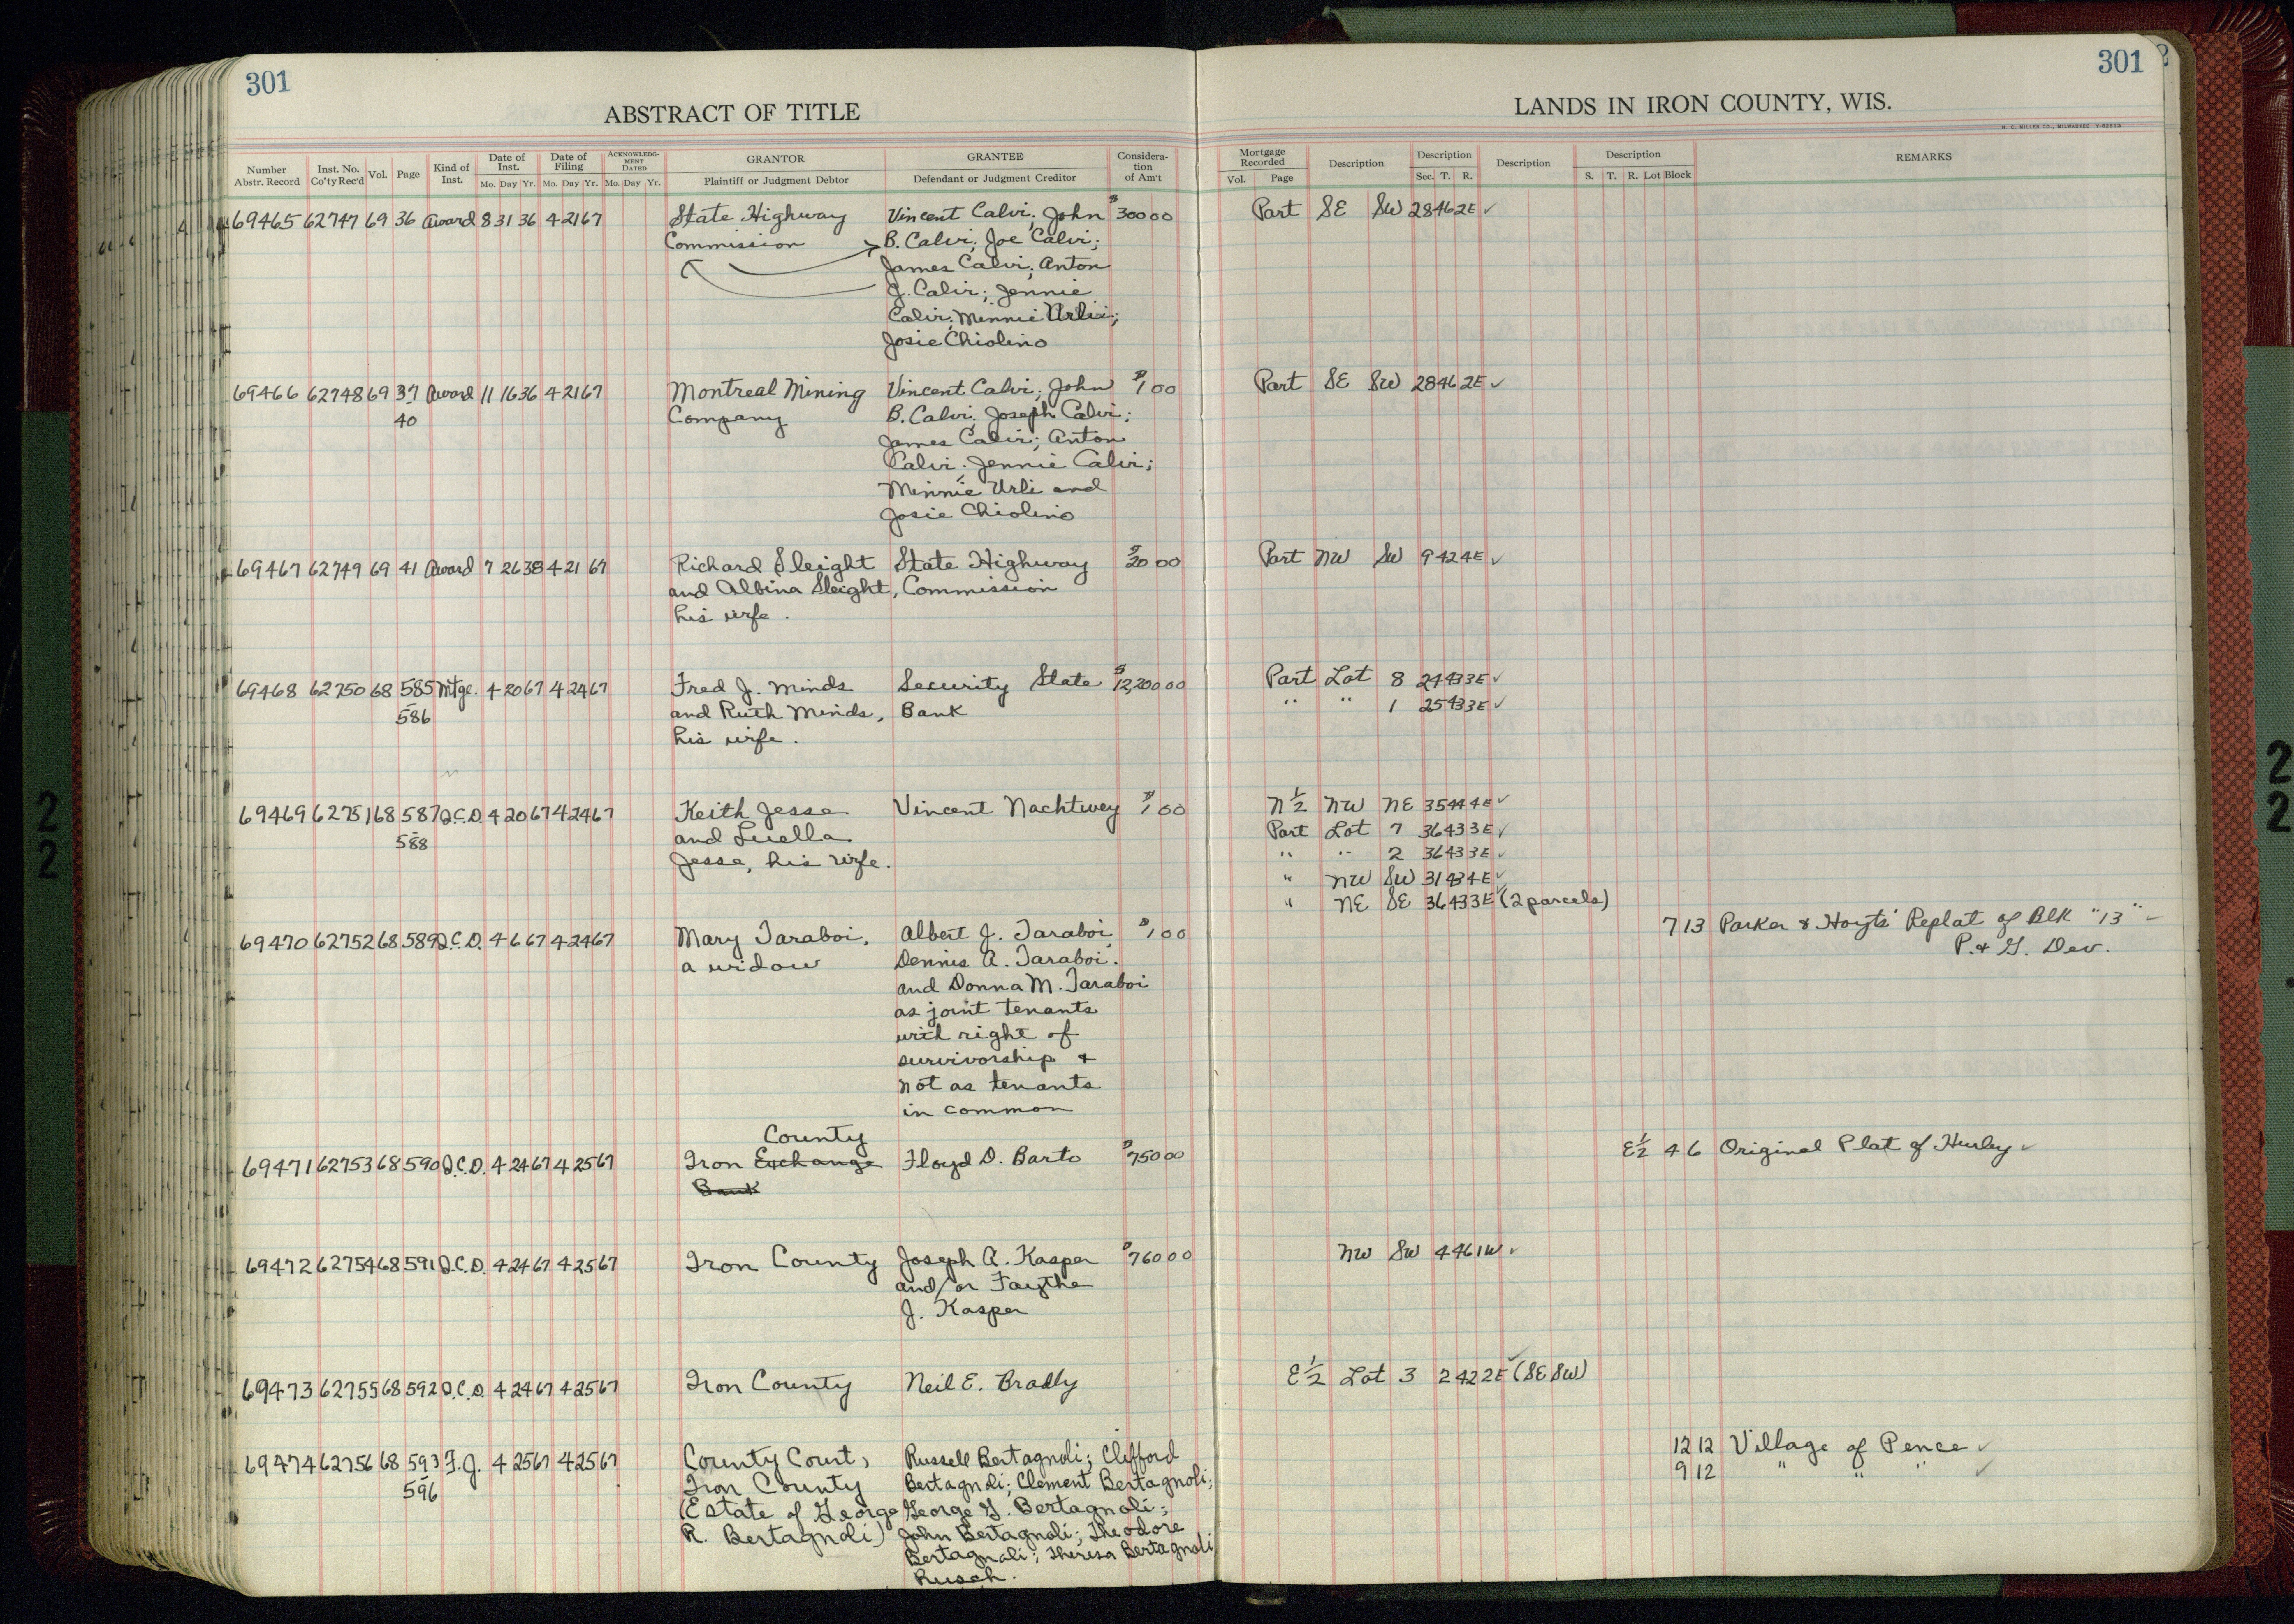 301
301
ABSTRACT OF TITLE
LANDS IN IRON COUNTY, WIS.
H. C. MILLER CO., MILWAUKEE
Number Abstr. Record | Inst. No. Co'ty Rec'd | Vol. | Page | Kind of Inst. | Date of Inst. Mo. Day Yr. | Date of Filing Mo. Day Yr. | ACKNOWLEDGMENT DATED Mo. Day Yr. | GRANTOR Plaintiff or Judgment Debtor | GRANTEE Defendant or Judgment Creditor | Consideration of Am't | Mortgage Recorded Vol. Page | Description | Description Sec. T. R. | Description | Description S. T. R. Lot Block | REMARKS
69465 62747 69 36 Award 8 31 36 4 21 67 State Highway Vincent Calvi; John $300 00 Part SE SW 28 46 2E ✓
Commission B. Calvi; Joe Calvi;
James Calvi; Anton
J. Calvi; Jennie
Calvi; Minnie Urli;
Josie Chiolino
69466 62748 69 37 Award 11 16 36 4 21 67 Montreal Mining Vincent Calvi; John $1 00 Part SE SW 28 46 2E ✓
40 Company B. Calvi; Joseph Calvi;
James Calvi; Anton
Calvi; Jennie Calvi;
Minnie Urli and
Josie Chiolino
69467 62749 69 41 Award 7 26 38 4 21 67 Richard Sleight State Highway $20 00 Part NW SW 9 42 4E ✓
and Albina Sleight, Commission
his wife.
69468 62750 68 585 Mtge. 4 20 67 4 24 67 Fred J. Minds Security State $12,200 00 Part Lot 8 24 43 3E ✓
586 and Ruth Minds, Bank " " 1 25 43 3E ✓
his wife.
69469 62751 68 587 Q.C.D. 4 20 67 4 24 67 Keith Jesse Vincent Nachtwey $1 00 N½ NW NE 35 44 4E ✓
588 and Luella Part Lot 7 36 43 3E ✓
Jesse, his wife. " " 2 36 43 3E ✓
" NW SW 31 43 4E ✓
" NE SE 36 43 3E (2 parcels)
69470 62752 68 589 Q.C.D. 4 6 67 4 24 67 Mary Taraboi, Albert J. Taraboi, $1 00 7 13 Parker & Hoyts' Replat of Blk "13" ✓
a widow Dennis A. Taraboi. P. & G. Dev.
and Donna M. Taraboi
as joint tenants
with right of
survivorship &
not as tenants
in common
County
69471 62753 68 590 Q.C.D. 4 24 67 4 25 67 Iron Exchange Floyd D. Barto $750 00 E½ 4 6 Original Plat of Hurley ✓
Bank
69472 62754 68 591 Q.C.D. 4 24 67 4 25 67 Iron County Joseph A. Kasper $760 00 NW SW 4 46 1W ✓
and/or Faythe
J. Kasper
69473 62755 68 592 Q.C.D. 4 24 67 4 25 67 Iron County Neil E. Bradly E½ Lot 3 2 42 2E ✓ (SE SW)
69474 62756 68 593 F.J. 4 25 67 4 25 67 County Court, Russell Bertagnoli; Clifford 12 12 Village of Pence ✓
596 Iron County Bertagnoli; Clement Bertagnoli; 9 12 " " " ✓
(Estate of George George G. Bertagnoli;
R. Bertagnoli) John Bertagnoli; Theodore
Bertagnoli; Theresa Bertagnoli
Rusch.
2
2
2
2